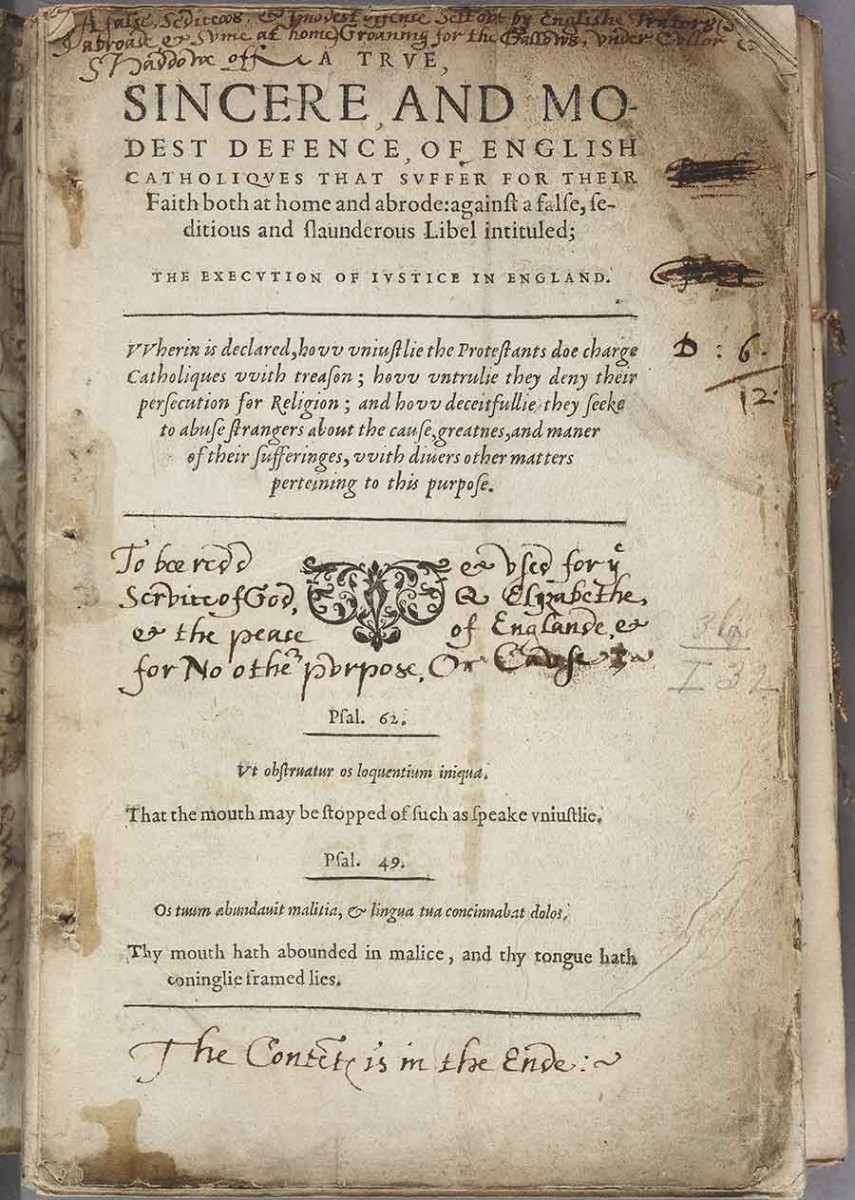 A false, Sediteos, & imodest offence Set out by Englishe Trators
abroade & Sume at home, Groaning for the Gallows, under Collor
Shaddowe off A TRVE,
SINCERE, AND MO-
DEST DEFENCE, OF ENGLISH
CATHOLIQVES THAT SVFFER FOR THEIR
Faith both at home and abrode: againſt a falſe, ſe-
ditious and ſlaunderous Libel intituled;
THE EXECVTION OF IVSTICE IN ENGLAND.
VVherin is declared, hovv vniuſtlie the Proteſtants doe charge
Catholiques vvith treaſon; hovv vntrulie they deny their
perſecution for Religion; and hovv deceitfullie they ſeeke
to abuſe ſtrangers about the cauſe, greatnes, and maner
of their ſufferinges, vvith diuers other matters
perteining to this purpoſe.
D : 6.
12.
To bee redd & vsed for yͤ
Service of God, Q Elyzabethe,
& the peace of Englande, &
for No other pvrpose, Or Cause
I 32
Pſal. 62.
Vt obſtruatur os loquentium iniqua.
That the mouth may be ſtopped of ſuch as ſpeake vniuſtlie.
Pſal. 49.
Os tuum abundauit malitia, & lingua tua concinnabat dolos.
Thy mouth hath abounded in malice, and thy tongue hath
coninglie framed lies.
The is in the Ende:~